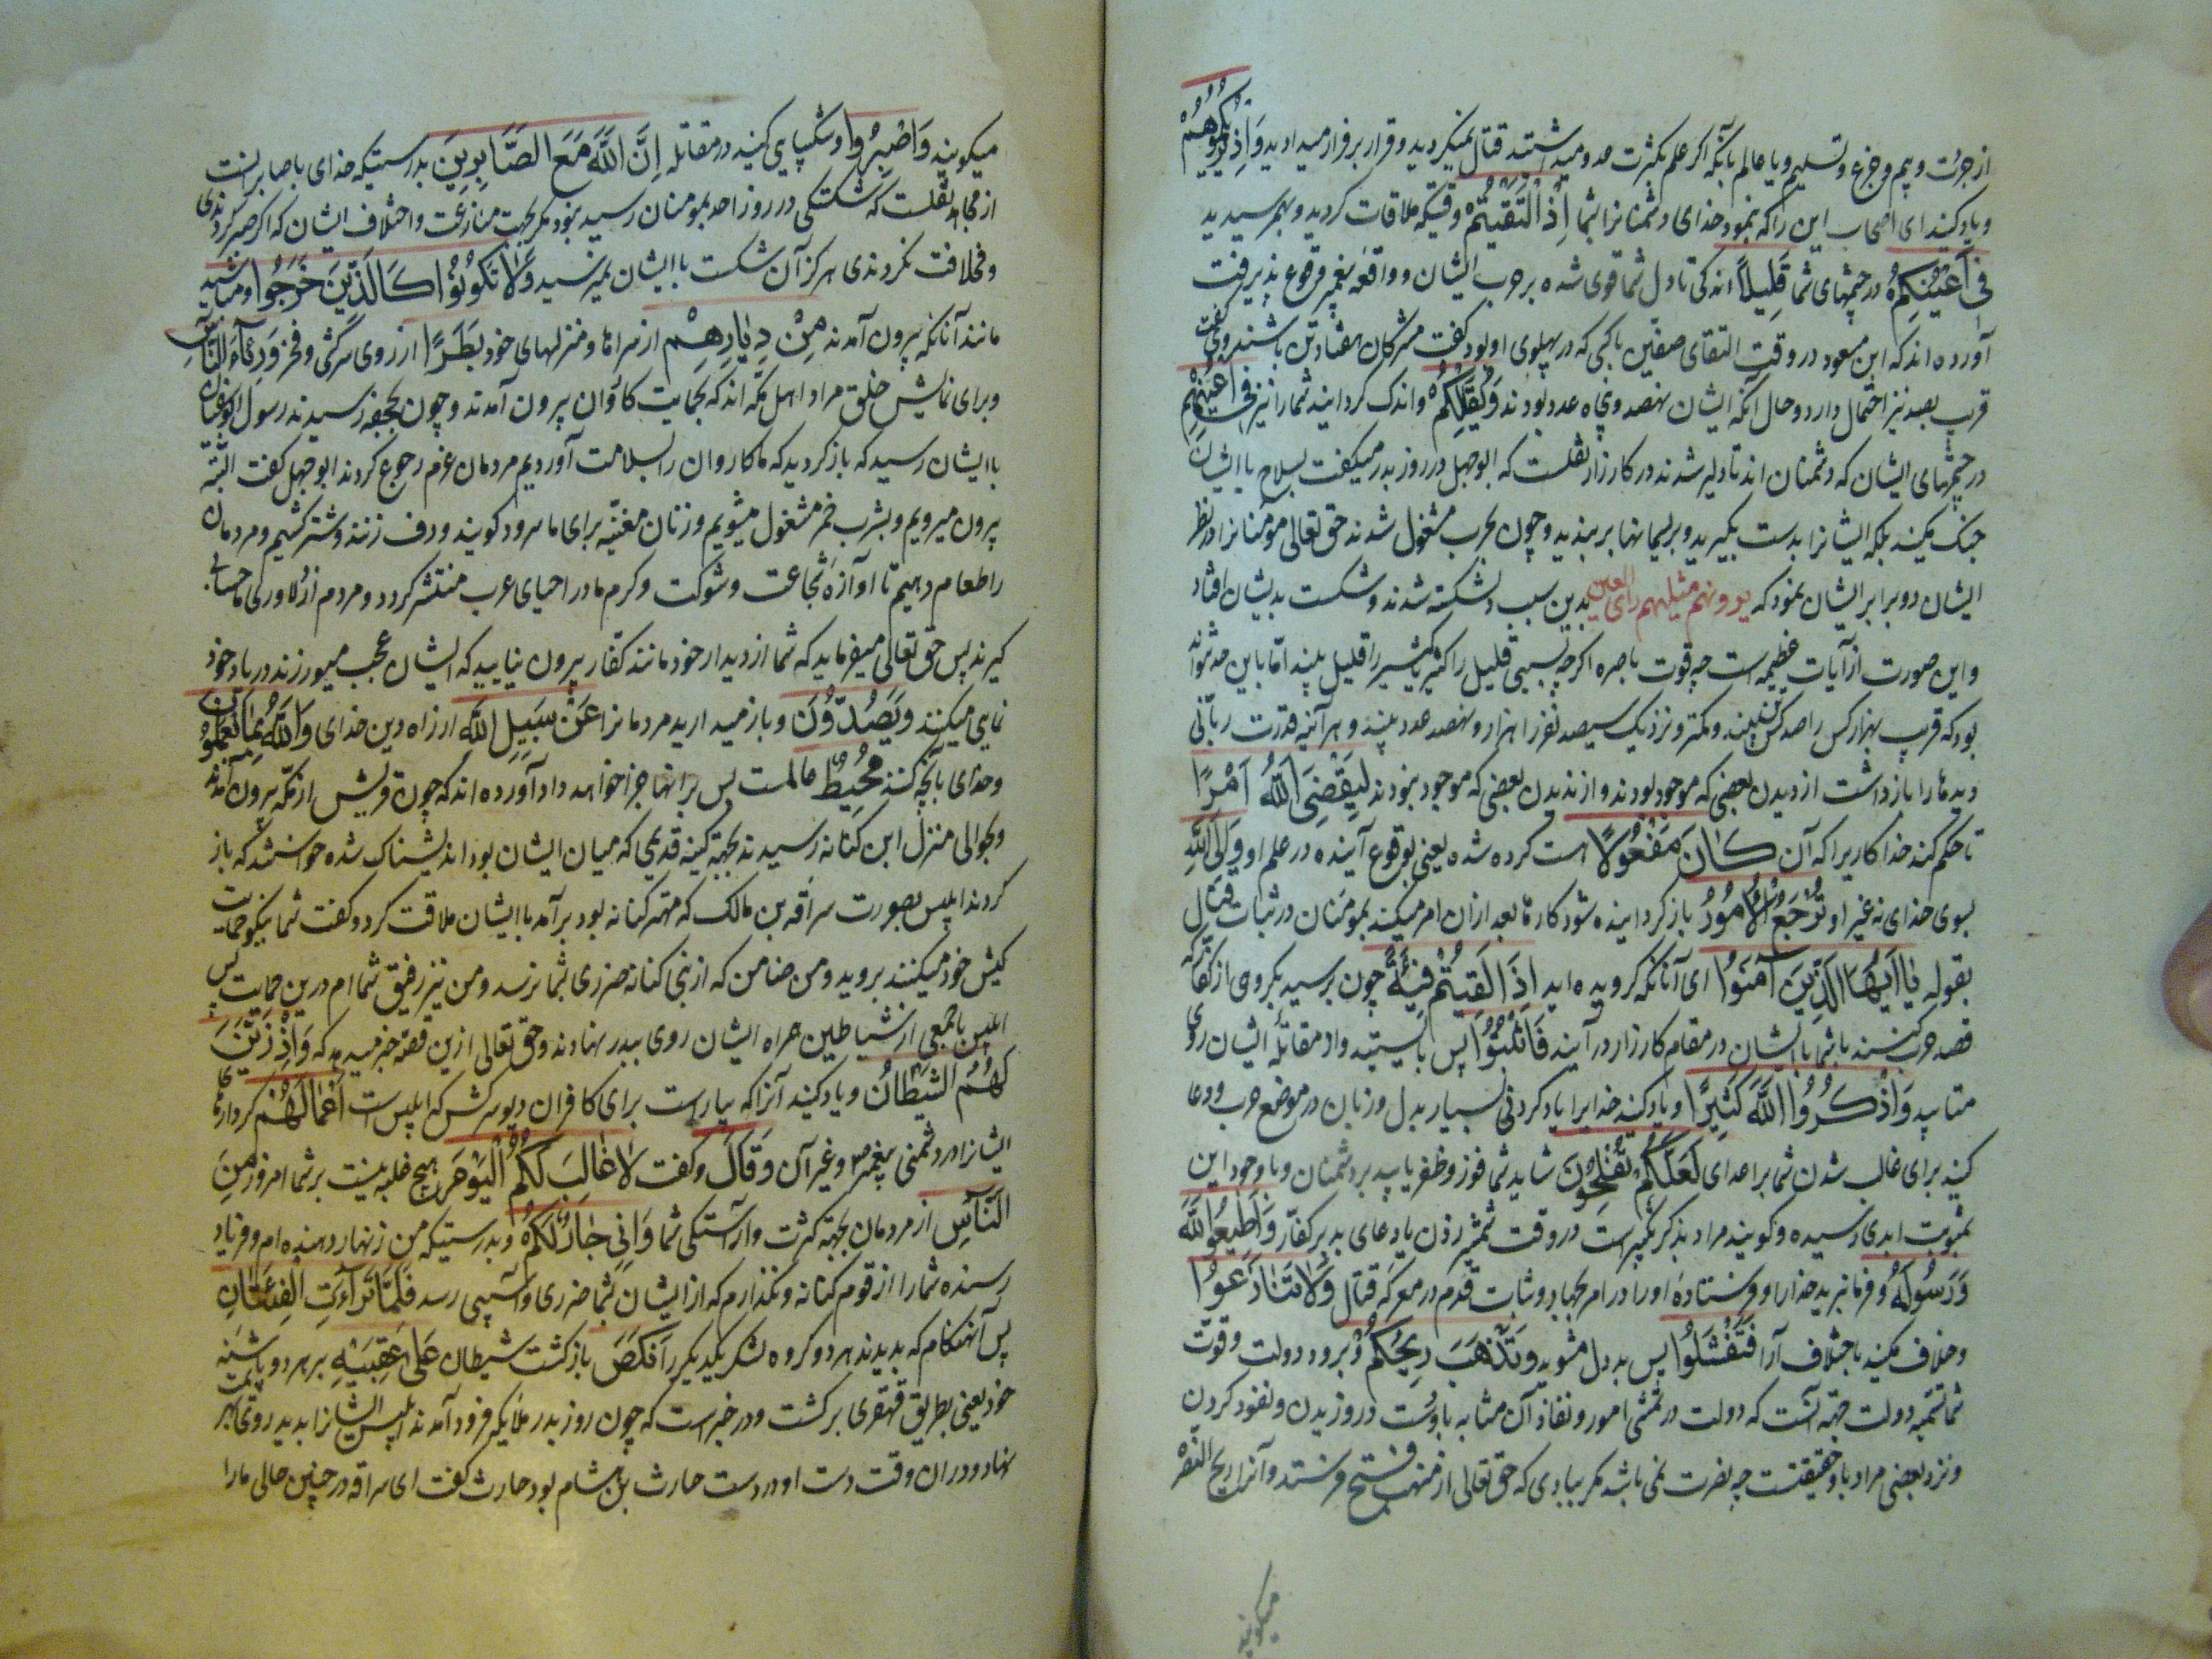 از جرئت و بیم و جزع و تسلیم و یا عالم بآنکه اکر علم بکثرت عدو میداشتید قتال نمیکردید و قرار بر فرار میدادید وَاِذ یُرِیکُمُوهُم
و یاد کنید ای اصحاب این را که بنمود خدای دشمنانرا بشما اِذِ الْتَقَیْتُمْ وقتیکه ملاقات کردید و بهم رسیدید
فِی اَعْیُنِکُمْ در چشمهای شما قَلِیلاً اندکی تا دل شما قوی شده بر حرب ایشان و واقعه پیغمبر وقوع پذیرفت
آورده اند که ابن مسعود در وقت التقای صفین با کسی که در پهلوی او بود کفت مشرکان هفتاد تن باشند وی کفت
قریب بصد نیز احتمال دارد و حال آنکه ایشان نهصد و پنجاه عدد بودند وَیُقَلِّلُکُمْ و اندک کردانید شما را نیز فِی اَعْیُنِهِمْ
در چشمهای ایشان که دشمنان اند تا دلیر شدند در کارزار نقلست که ابوجهل در روز بدر میکفت بسلاح با ایشان
جنک مکنید بلکه ایشانرا بدست بکیرید و بریسمانها بر بندید و چون بحرب مشغول شدند حق تعالی مؤمنانرا در نظر
ایشان دو برابر ایشان بنمود که یرونهم مثلیهم رأی العین بدین سبب دلشکسته شدند و شکست بدیشان افتاد
و این صورت از آیات عظیمه است چه قوت باصره اکرچه بسببی قلیل را کثیر یا کثیر را قلیل بیند اما باین حد نتواند
بود که قریب بهزار کس را صد کس بیند و کمتر و نزدیک سیصد نفر را هزار و نهصد عدد بیند و هر آینه قدرت ربانی
دیدها را باز داشت از دیدن بعضی که موجود بودند و از ندیدن بعضی که موجود نبودند لِیَقْضِیَ اللّٰهُ اَمْرًا
تا حکم کند خدا کاریرا که آن کَانَ مَفْعُولاً است کرده شده یعنی بوقوع آینده در علم او وَاِلَی اللّٰهِ
بسوی خدای نه غیر او تُرْجَعُ الْاُمُورُ باز کردانیده شود کارها بعد ازان امر میکند بمؤمنان در ثبات قتال
بقوله یٰا اَیُّهَا الَّذِینَ آمَنُوا ای آنانکه کرویده اید اِذَا لَقِیتُمْ فِئَةً چون برسید بکروهی از کفار که
قصد حرب کنند با شما با ایشان در مقام کارزار در آیند فَاثْبُتُوا پس بایستید و از مقاتله ایشان روی
متابید وَاذْکُرُوا اللّٰهَ کَثِیرًا و یاد کنید خدایرا یاد کردنی بسیار بدل و زبان در موضع حرب و دعا
کنید برای غالب شدن شما بر اعدای لَعَلَّکُمْ تُفْلِحُونَ شاید شما فوز و ظفر یابید بر دشمنان و با وجود این
بمثوبت ابدی رسیده و کویند مراد بذکر تکبیر است در وقت شمشیر زدن یا دعای بد بر کفار وَاَطِیعُوا اللّٰهَ
وَرَسُولَهُ و فرمانبرید خدا را و فرستاده اورا در امر جهاد و ثبات قدم در معرکه قتال وَلَا تَنَازَعُوا
و خلاف مکنید باختلاف آرا فَتَفْشَلُوا پس بد دل شوید وَتَذْهَبَ رِیحُکُمْ و برود دولت و قوت
شما تسمیه دولت جهة آنست که دولت در تمشی امور و نفاذ آن مشابه باوست در وزیدن و نفوذ کردن
و نزد بعضی مراد باد حقیقتست چه نصرت نمی باشد مکر ببادی که حق تعالی از مهب فتح فرستد و آنرا ریح النصر
میکویند
میکویند وَاصْبِرُوا و شکیبایی کنید در مقاتله اِنَّ اللّٰهَ مَعَ الصَّابِرِینَ بدرستیکه خدای با صابرانست
از مجاهد نقلست که شکستکی در روز احد بمؤمنان رسید نبود مکر بجهت منازعت و اختلاف ایشان که اکر صبر کردندی
و مخلافت نکردندی هرکز آن شکست با ایشان نمیرسید وَلَا تَکُونُوا کَالَّذِینَ خَرَجُوا و مباشید
مانند آنانکه بیرون آمدند مِنْ دِیَارِهِمْ از سراها و منزلهای خود بَطَرًا از روی سرکشی و فخر وَرِئَاءَ النَّاسِ
و برای نمایش خلق مراد اهل مکه اند که بحمایت کاروان بیرون آمدند و چون بجحفه رسیدند رسول ابوسفیان
با ایشان رسید که باز کردید که ما کاروان را بسلامت آوردیم مردمان عزم رجوع کردند ابوجهل کفت البته
بیرون میرویم و بشرب خمر مشغول میشویم و زنان مغنیه برای ما سرود کویند و دف زنند و شتر کشیم و مردمان
را طعام دهیم تا آوازه شجاعت و شوکت و کرم ما در احیای عرب منتشر کردد و مردم از دلاوری ما حسابی
کیرند پس حق تعالی میفرماید که شما از دیدار خود مانند کفار بیرون نیایید که ایشان عجب میورزند در باد خود
نمایی میکنند وَیَصُدُّونَ و باز میدارید مردمانرا عَنْ سَبِیلِ اللّٰهِ از راه دین خدای وَاللّٰهُ بِمَا یَعْمَلُونَ
و خدای بآنچه کنند مُحِیطٌ عالمست پس بر آنها جزا خواهد داد آورده اند که چون قریش از مکه بیرون آمدند
و بحوالی منزل ابن کنانه رسیدند بجهة کینه قدیمی که میان ایشان بود اندیشناک شده خواستند که باز
کردند ابلیس بصورت سراقه بن مالک که مهتر کنانه بود بر آمد با ایشان ملاقت کرد و کفت شما نیکو حمایت
کیش خود میکنند بروید و من ضامن که از بنی کنانه ضرری بشما نرسد و من نیز رفیق شما ام درین حمایت پس
ابلیس با جمعی از شیاطین همراه ایشان روی ببدر نهادند و حق تعالی ازین قصه خبر میدهد که وَاِذْ زَیَّنَ
لَهُمُ الشَّیْطَانُ و یاد کنید آنرا که بیاراست برای کافران دیو سرکش که ابلیس است اَعْمَالَهُمْ کردارهای
ایشانرا در دشمنی پیغمبر و غیر آن وَقَالَ و کفت لَا غَالِبَ لَکُمُ الْیَوْمَ هیچ غلبه نیست بر شما امروز مِنَ
النَّاسِ از مردمان بجهة کثرت و آراستکی شما وَاِنِّی جَارٌ لَکُمْ و بدرستیکه من زنهار دهنده ام و فریاد
رسنده شما را از قوم کنانه و نکذارم که از ایشان بشما ضرری و آسیبی رسد فَلَمَّا تَرَاءَتِ الْفِئَتَانِ
پس آنهنکام که بدیدند هر دو کروه لشکر یکدیکر را نَکَصَ بازکشت شیطان عَلَی عَقِبَیْهِ بر هر دو پاشنه
خود یعنی بطریق قهقری برکشت و در خبر است که چون روز بدر ملایکه فرود آمدند ابلیس ایشانرا بدید روی بکریز
نهاد و دران وقت دست او در دست حارث بن هشام بود حارث کفت ای سراقه در چنین حالی مارا